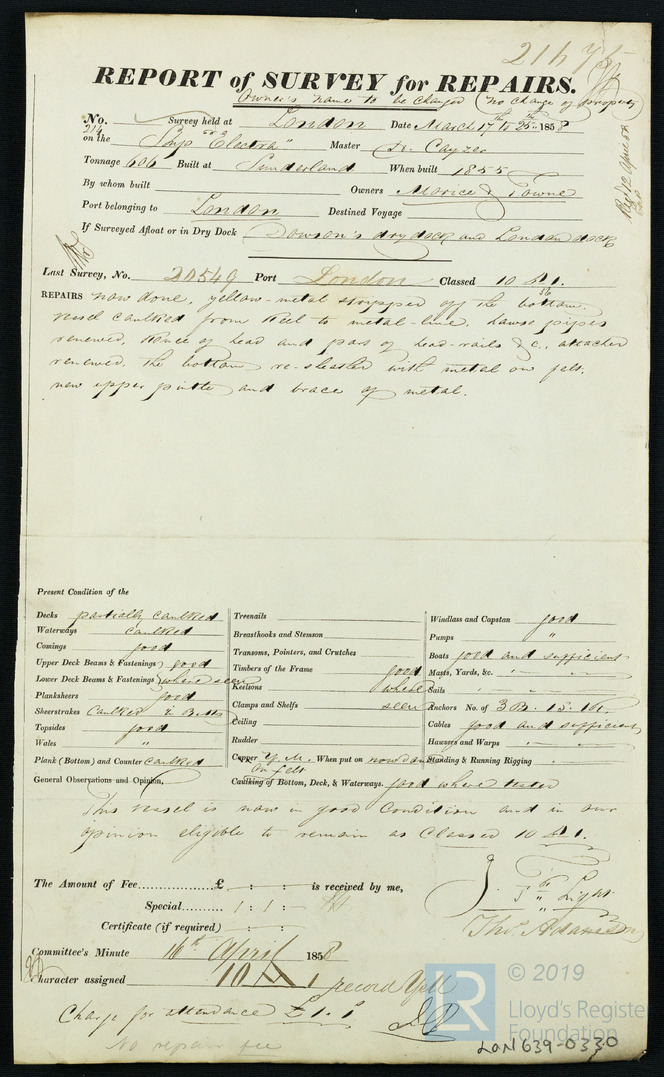 REPORT of SURVEY for REPAIRS.
Owner's name to be changed (no change of property)
No. 214 Survey held at London Date March 17th & 25th 1858
on the Ship "Electra" Master Cayzer
Tonnage 606 Built at Sunderland When built 1855
By whom built Owners Morice & Towne
Port belonging to London Destined Voyage
If Surveyed Afloat or in Dry Dock Dowson's dry dock and London dock
Last Survey, No. 20549 Port London Classed 10 A 1.
REPAIRS now done, yellow-metal stripped off the bottom.
Vessel caulked from keel to metal-line. hawse pipes
renewed, knee of head and part of head-rails &c. attached
renewed, the bottom re-sheathed with metal on felt.
new upper pintle and brace of metal.
Present Condition of the
Decks partially caulked
Waterways caulked
Comings good
Upper Deck Beams & Fastenings good
Lower Deck Beams & Fastenings where seen
Planksheers good
Sheerstrakes Caulked & Butts
Topsides good
Wales "
Plank (Bottom) and Counter caulked
General Observations and Opinion,
Treenails
Breasthooks and Stemson
Transoms, Pointers, and Crutches
Timbers of the Frame good
Keelsons where
Clamps and Shelfs seen
Ceiling
Rudder
Copper Y.M. When put on now done
on felt
Caulking of Bottom, Deck, & Waterways. good where tested
Windlass and Capstan good
Pumps "
Boats good and sufficient
Masts, Yards, &c.
Sails
Anchors No. of 3 B. 1 S. 1 K.
Cables good and sufficient
Hawsers and Warps
Standing & Running Rigging
This vessel is now in good Condition and in our
opinion eligible to remain as Classed 10 A 1.
The Amount of Fee £ is received by me,
Special 1 : 1 : -
Certificate (if required)
Light
Thos. Adamson
Committee's Minute 16th April 1858
Character assigned 10 A 1 record
Charge for attendance £1.1
No repair fee
© 2019
LR
Lloyd's Register
Foundation
LON639-0330